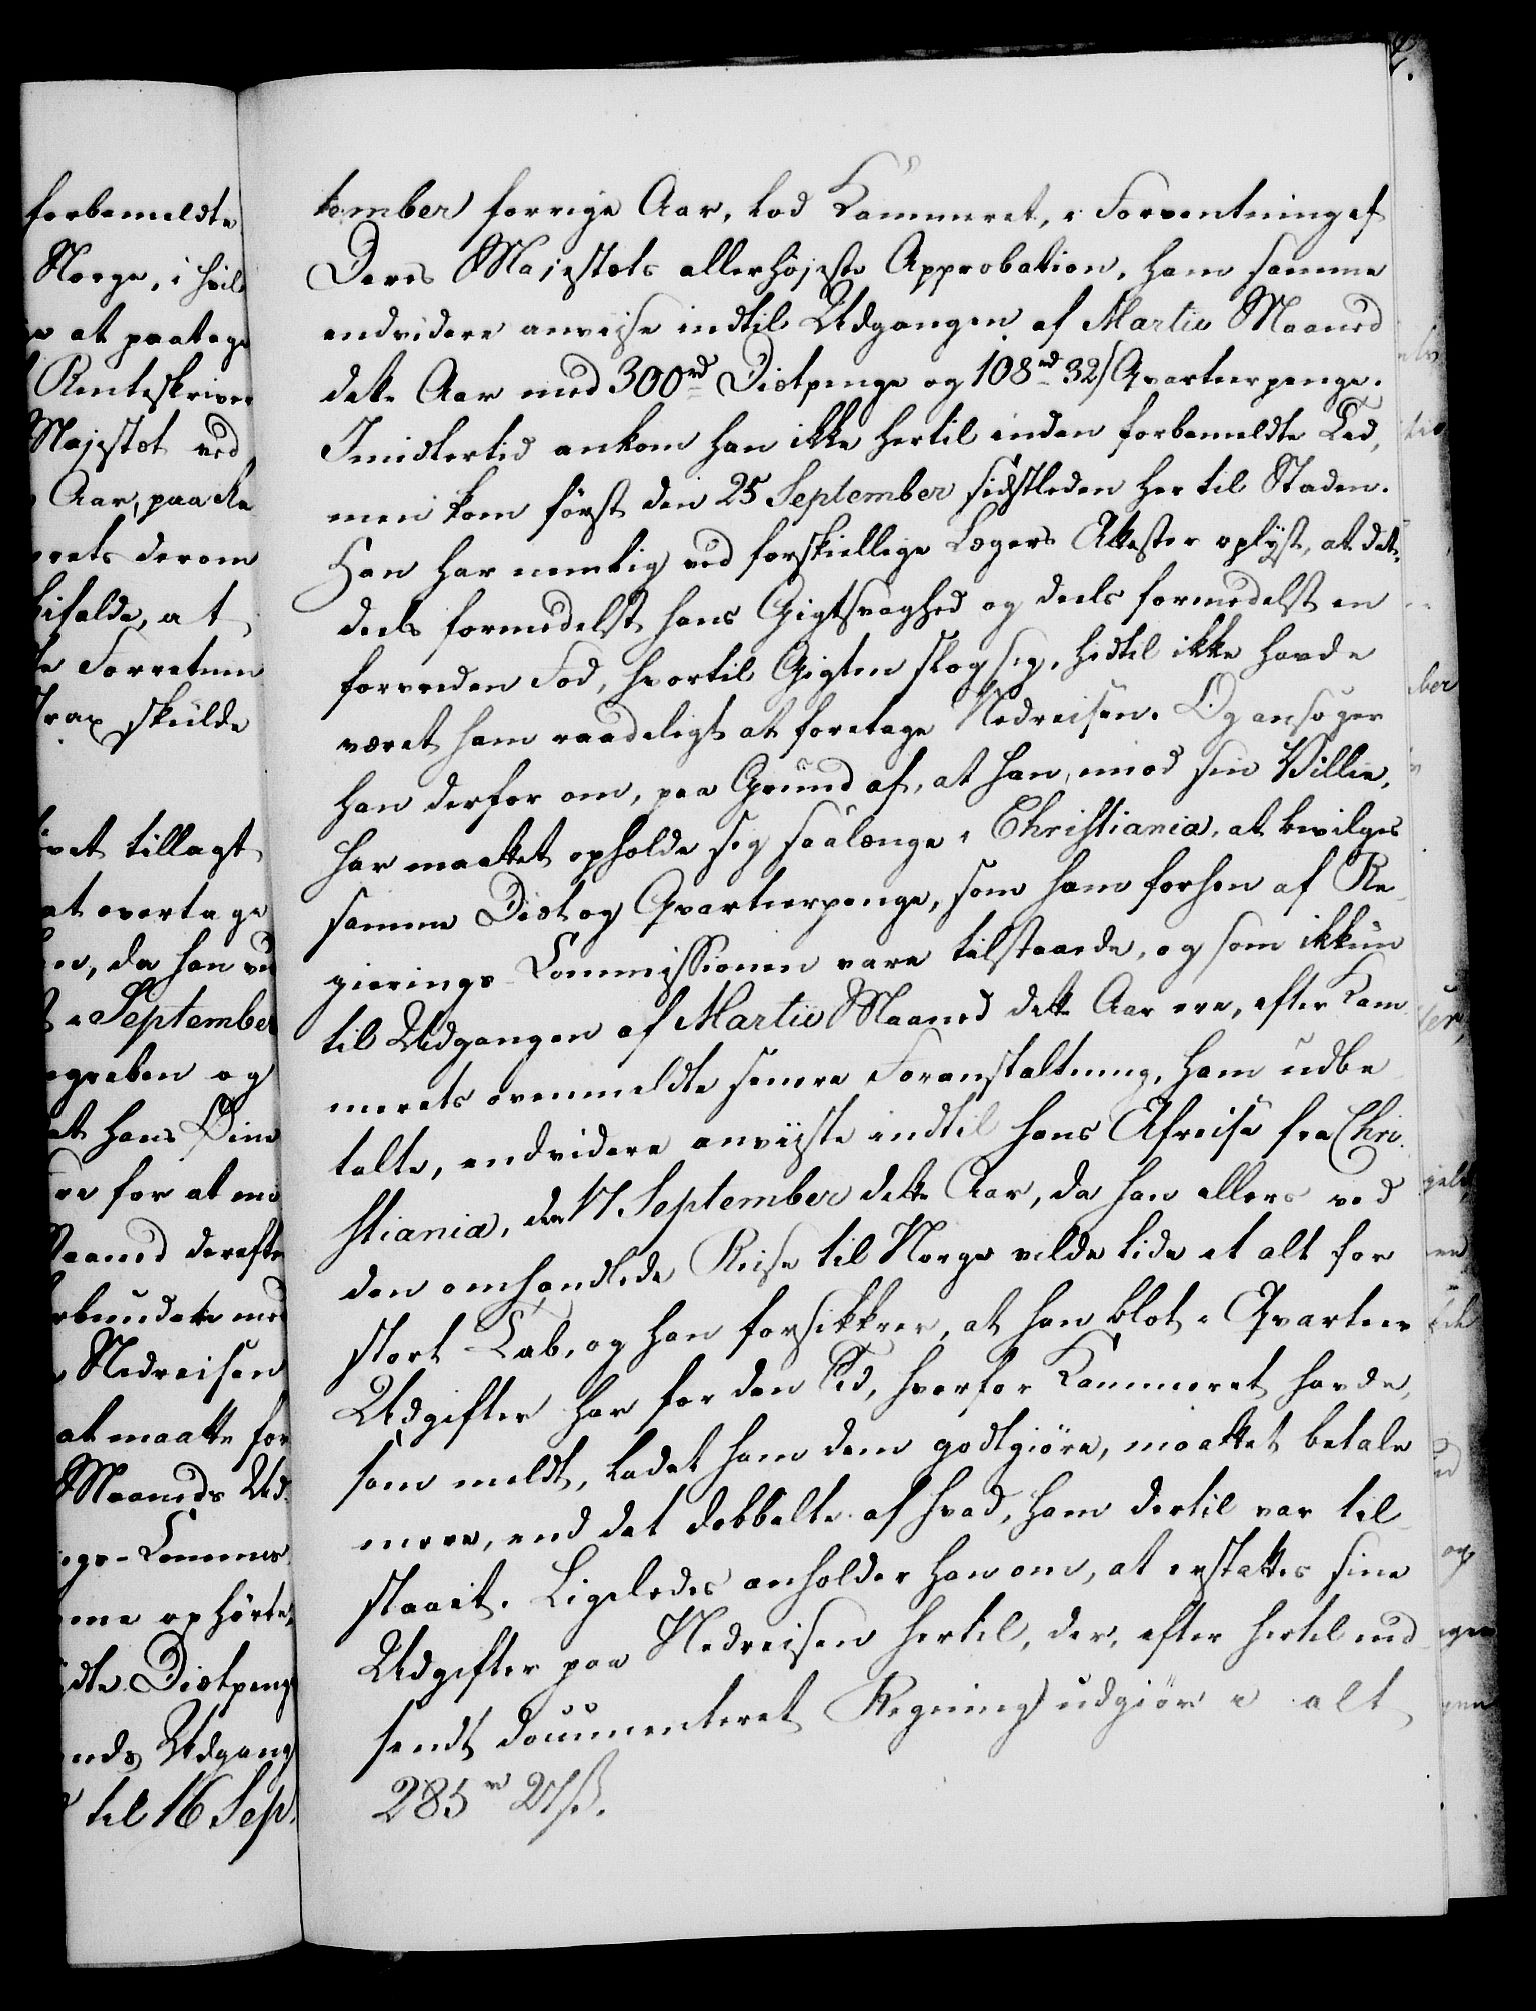 forbemeldte
Norge, i hvil
at paatage
Renteskriver
Majestæt ved
Aar, paa Ka
rets derom
bifalde, at
Forretnin
Trax skulde
vet tillagt
at overtage
da han vu
September
egreben og
at hans Dim
for at mo
Maaned derefte
rbundete med
Nedreisen
at maatte for
Maaneds Ud-
ngs-Commis
me ophørte,
dte Diætpeng
nds Udgang
til 16 Sep-
tember forrige Aar, lod Kammeret, i Forventning af
Deres Majestæts allerhøjeste Approbation, ham samme
endvidere anvise indtil Udgangen af Martii Maaned
dette Aar med 300 rd Diætpenge og 108 rd 32 s Qvarteerpenge.
Imidlertid ankom han ikke hertil inden forbemeldte Tid,
men kom først den 25 September sidstleden her til Staden.
Han har nemlig ved forskiellige Lægers Attester oplyst, at det,
deels formedelst hans Gigtsvaghed og deels formedelst en
forvreden Fod, hvortil Gigten slog sig, hidtil ikke havde
været ham raadeligt at foretage Nedreisen. Og ansøger
han derfor om, paa Grund af, at han, imod sin Villie,
har maattet opholde sig saalænge i Christiania, at bevilges
samme Diæt og Qvarteerpenge, som ham forhen af Re-
gierings-Commissionen vare tilstaaede, og som ikkun
til Udgangen af Martii Maaned dette Aar ere, efter Kam-
merets ovenmeldte senere Foranstaltning, ham udbe-
talte, endvidere anviiste indtil hans Afreise fra Chri-
stiania, den 17 September dette Aar, da han ellers ved
den omhandlede Reise til Norge vilde lide et alt for
stort Tab, og han forsikkrer, at han blot i Qvarteer
Udgifter har for den Tid, hvorfor Kammeret havde,
som meldt, ladet ham dem godtgiøre, maattet betale
mere, end det dobbelte af hvad, ham dertil var til-
staaet. Ligeledes anholder han om, at erstattes sine
Udgifter paa Nedreisen hertil, der, efter hertil ind-
sendt documenteret Regning udgiør i alt
285 rd 21 ß.